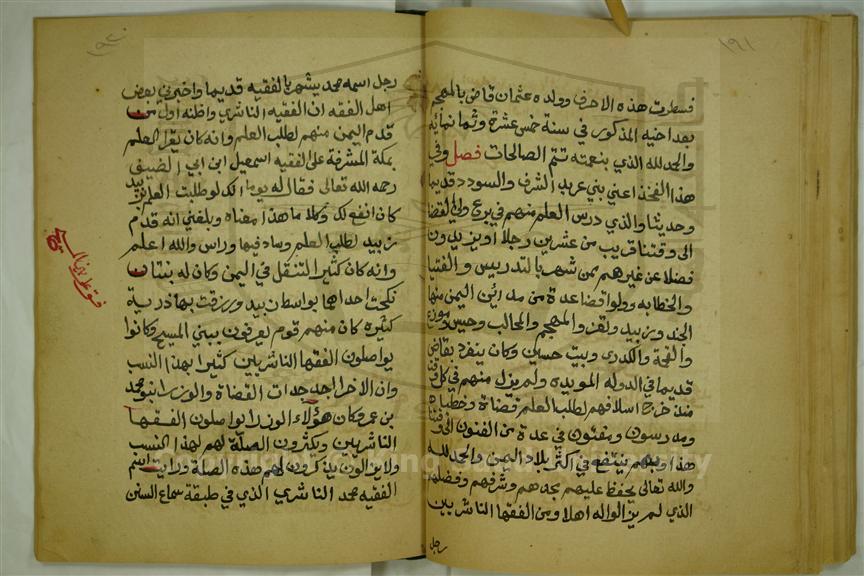 ١٩١
فسطرت هذه الاحرف وولده عثمان قاض بالمهجم
بعد اخيه المذكور في سنة خمس عشرة وثمانمائة
والحمد لله الذي بنعمته تتم الصالحات فصل وفي
هذا الفخذ اعني بني عبد الشرف والسودد قديما
وحديثا والذي درس العلم منهم في يرع والي القضا
الى وقتنا قريب من عشرين رجلا او يزيدون
فضلا عن غيرهم ممن شهر بالتدريس والفتيا
والخطابه وولوا قضا عدة من مدائن اليمن منها
الجند وزبيد وتعز والمهجم والمحالب وحيس وموزع
والقحمة والكدرى وبيت حسين وكان ينفرد بقاض
قديما في الدوله المويده ولم يزل منهم في كل وقت
منذ خرج اسلافهم لطلب العلم قضاة وخطباء
ومدرسون ومفتون في عدة من الفنون الى وقتنا
هذا وبهم ينتفع في اكثر بلاد اليمن والحمد لله
والله تعالى يحفظ عليهم مجدهم وشرفهم وفضلهم
الذي لم يزالوا له اهلا ومن الفقها الناشريين
رجل
١٩٢
رجل اسمه محمد يشهر بالفقيه قديما واخبرني بعض
اهل الفقه ان الفقيه الناشري واظنه اول من
قدم اليمن منهم لطلب العلم وانه كان يقرا العلم
بمكة المشرفة على الفقيه اسمعيل ابن ابي الضيف
رحمه الله تعالى فقال له يوما لو طلبت العلم بزبيد
كان انفع لك وكلاما هذا معناه وبلغني انه قدم
زبيد لطلب العلم وساد فيها وراس والله اعلم
وانه كان كثير التنقل في اليمن وكان له بنتان
نكحت احداها بواسط زبيد ورزقت بها ذرية
كثيره كان منهم قوم يعرفون ببني المسيح وكانوا
يواصلون الفقها الناشريين كثيرا بهذا النسب
وان الاخرا جد جدات القضاة والوزرا بنو محمد
بن عمر وكان هؤلاء الوزرا يواصلون الفقها
الناشريين ويكثرون الصلة لهم لهذا النسب
ولا يزالون يذكرون لهم هذه الصلة ورايت اسم
الفقيه محمد الناشري الذي في طبقة سماع السنن